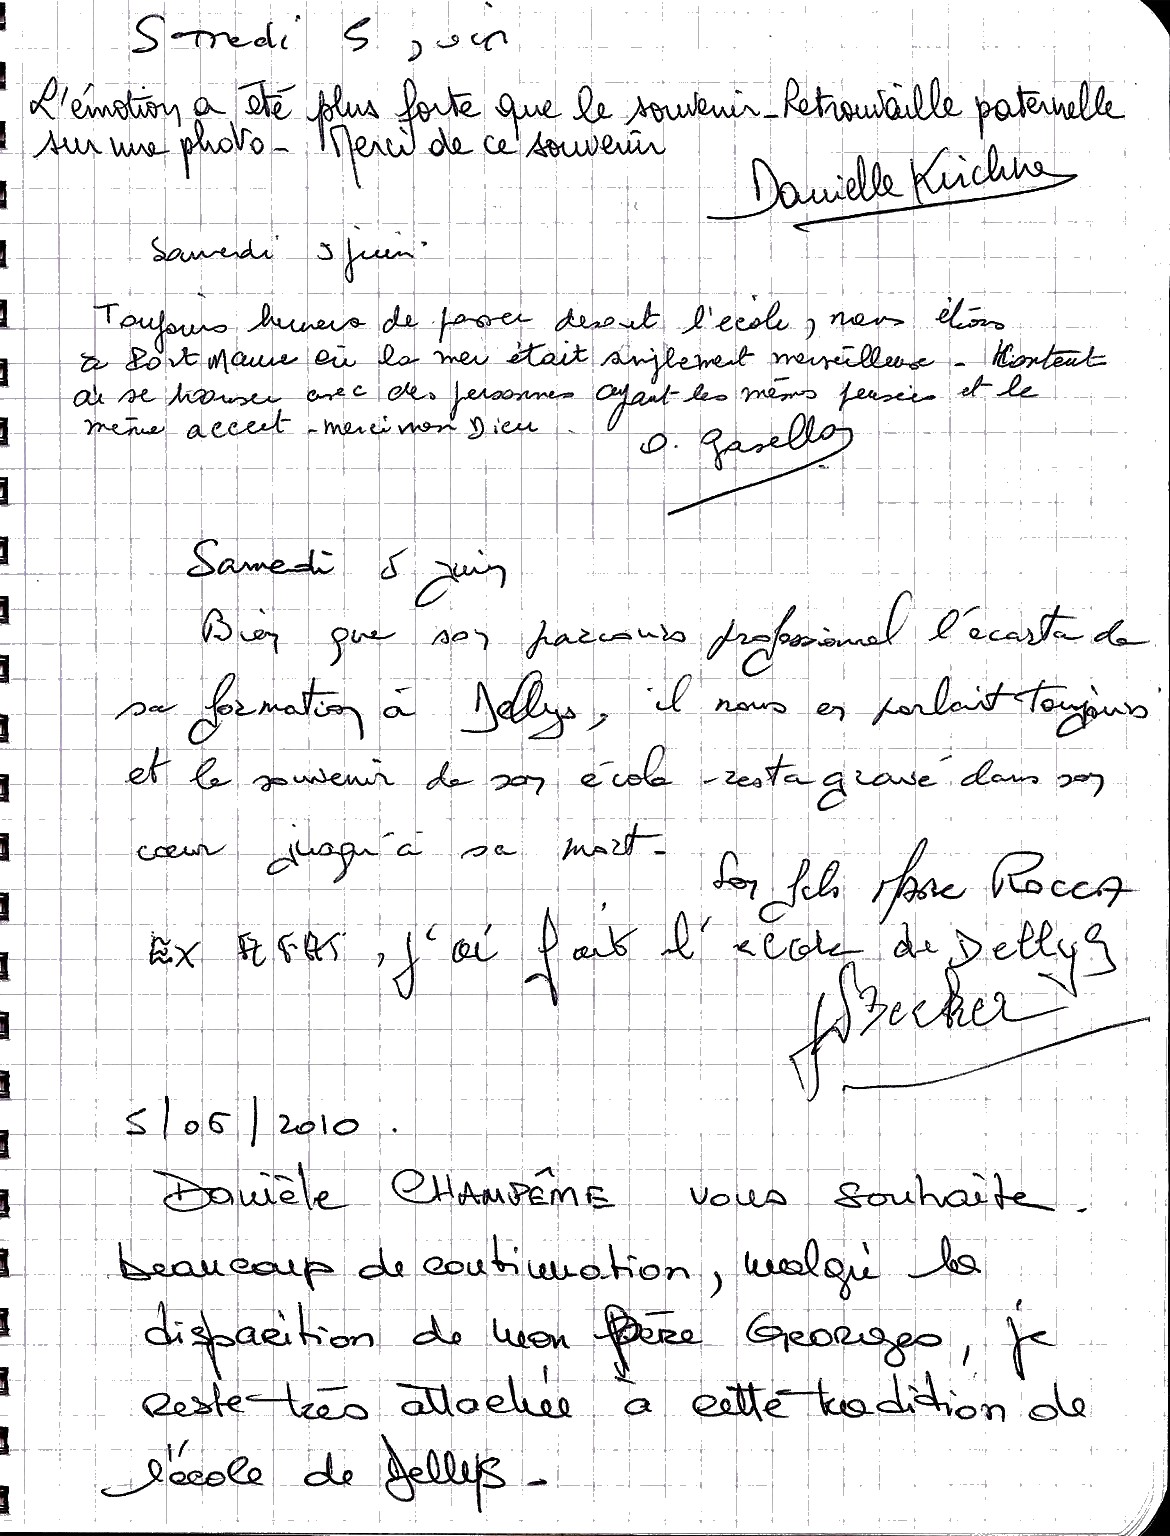 Samedi 5 juin
L'émotion a été plus forte que le souvenir - Retrouvaille paternelle
sur une photo - Merci de ce souvenir
Danielle Kirchne
Samedi 5 juin
Toujours heureux de passer devant l'école, nous étions
à Port Maure où la mer était simplement merveilleuse - Content
de se trouver avec des personnes ayant les mêmes pensées et le
même accent - merci mon Dieu
O. Gasella
Samedi 5 juin
Bien que son parcours professionnel l'écarta de
sa formation à Dellys, il nous en parlait Toujours
et le souvenir de son école resta gravé dans son
cœur jusqu'à sa mort -
Son fils Marc ROCCA
Ex , j'ai fait l'école de Dellys
Becker
5/06/2010.
Danièle CHAMPÊME vous souhaite
beaucoup de continuation, malgré la
disparition de mon Père Georges, je
reste très attachée à cette tradition de
l'école de Dellys -